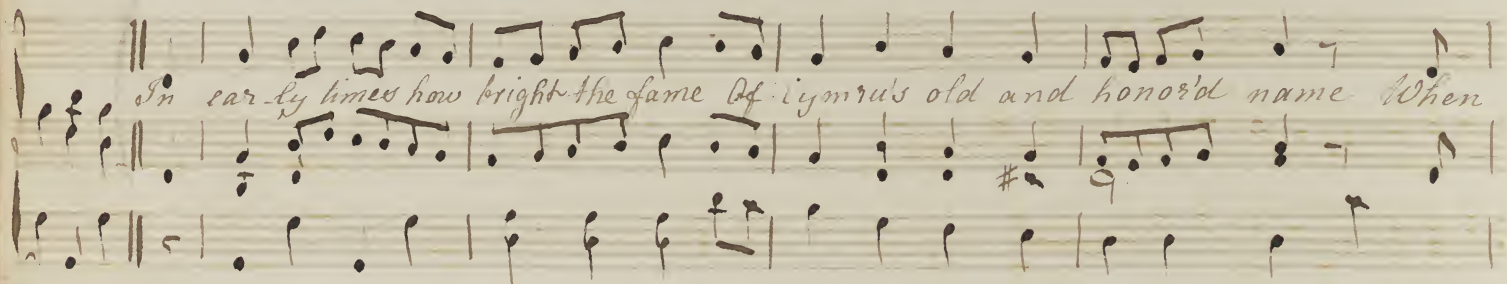 In ear-ly times how bright the fame Of Cymru's old and honor'd name When